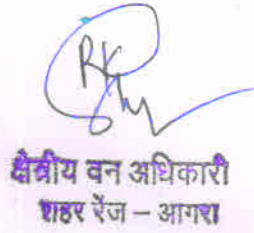 क्षेत्रीय वन अधिकारी
शहर रेंज – आगरा